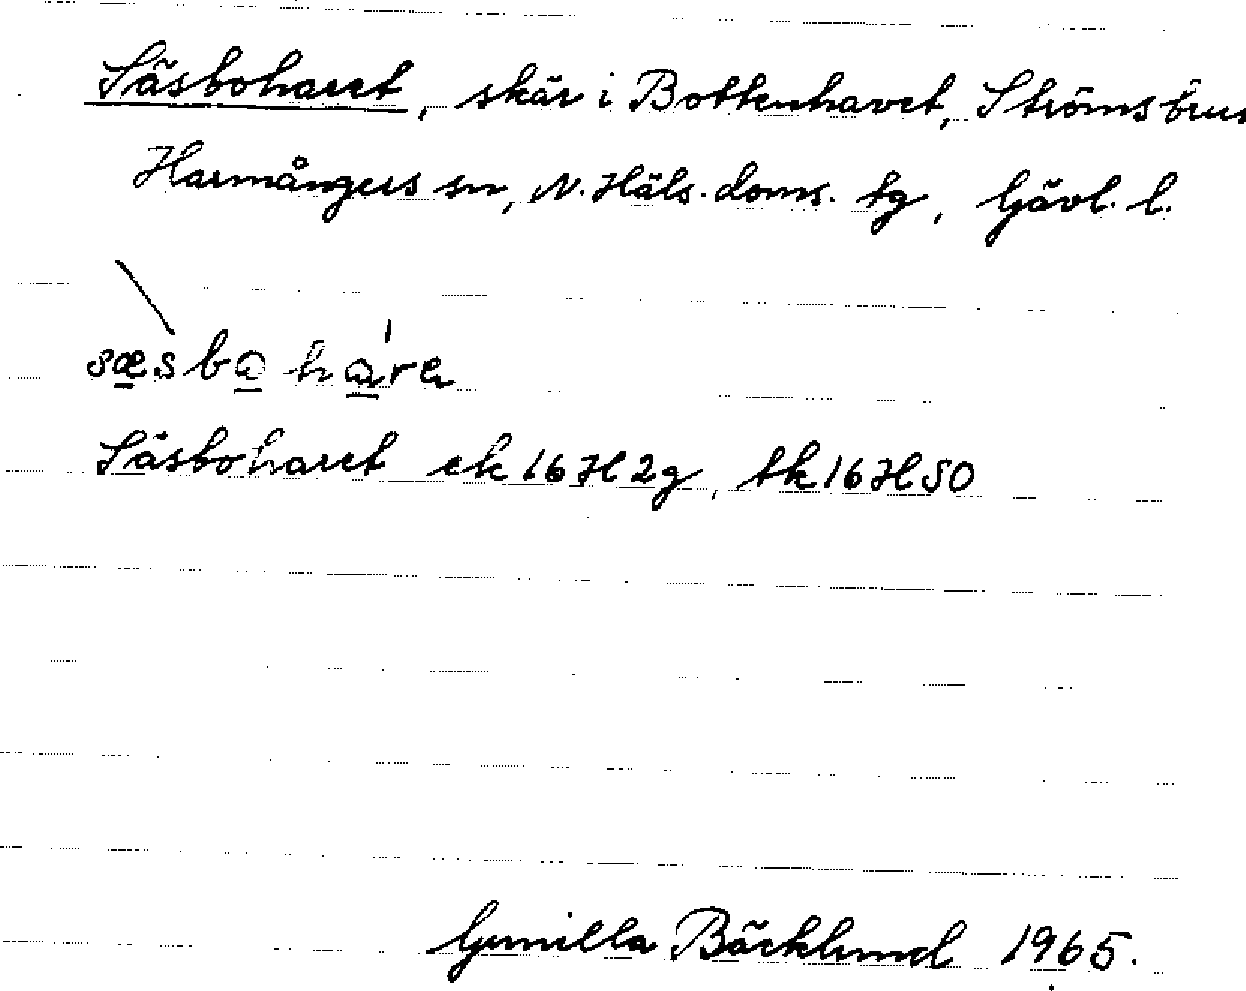 Säsboharet, skär i Bottenhavet, Strömsbruk
Harmångers sn, N. Häls. doms. tg, Gävl. l.
sæsbo hare
Säsboharet ek 16H2g, tk 16H SO
Gunilla Bäcklund 1965.